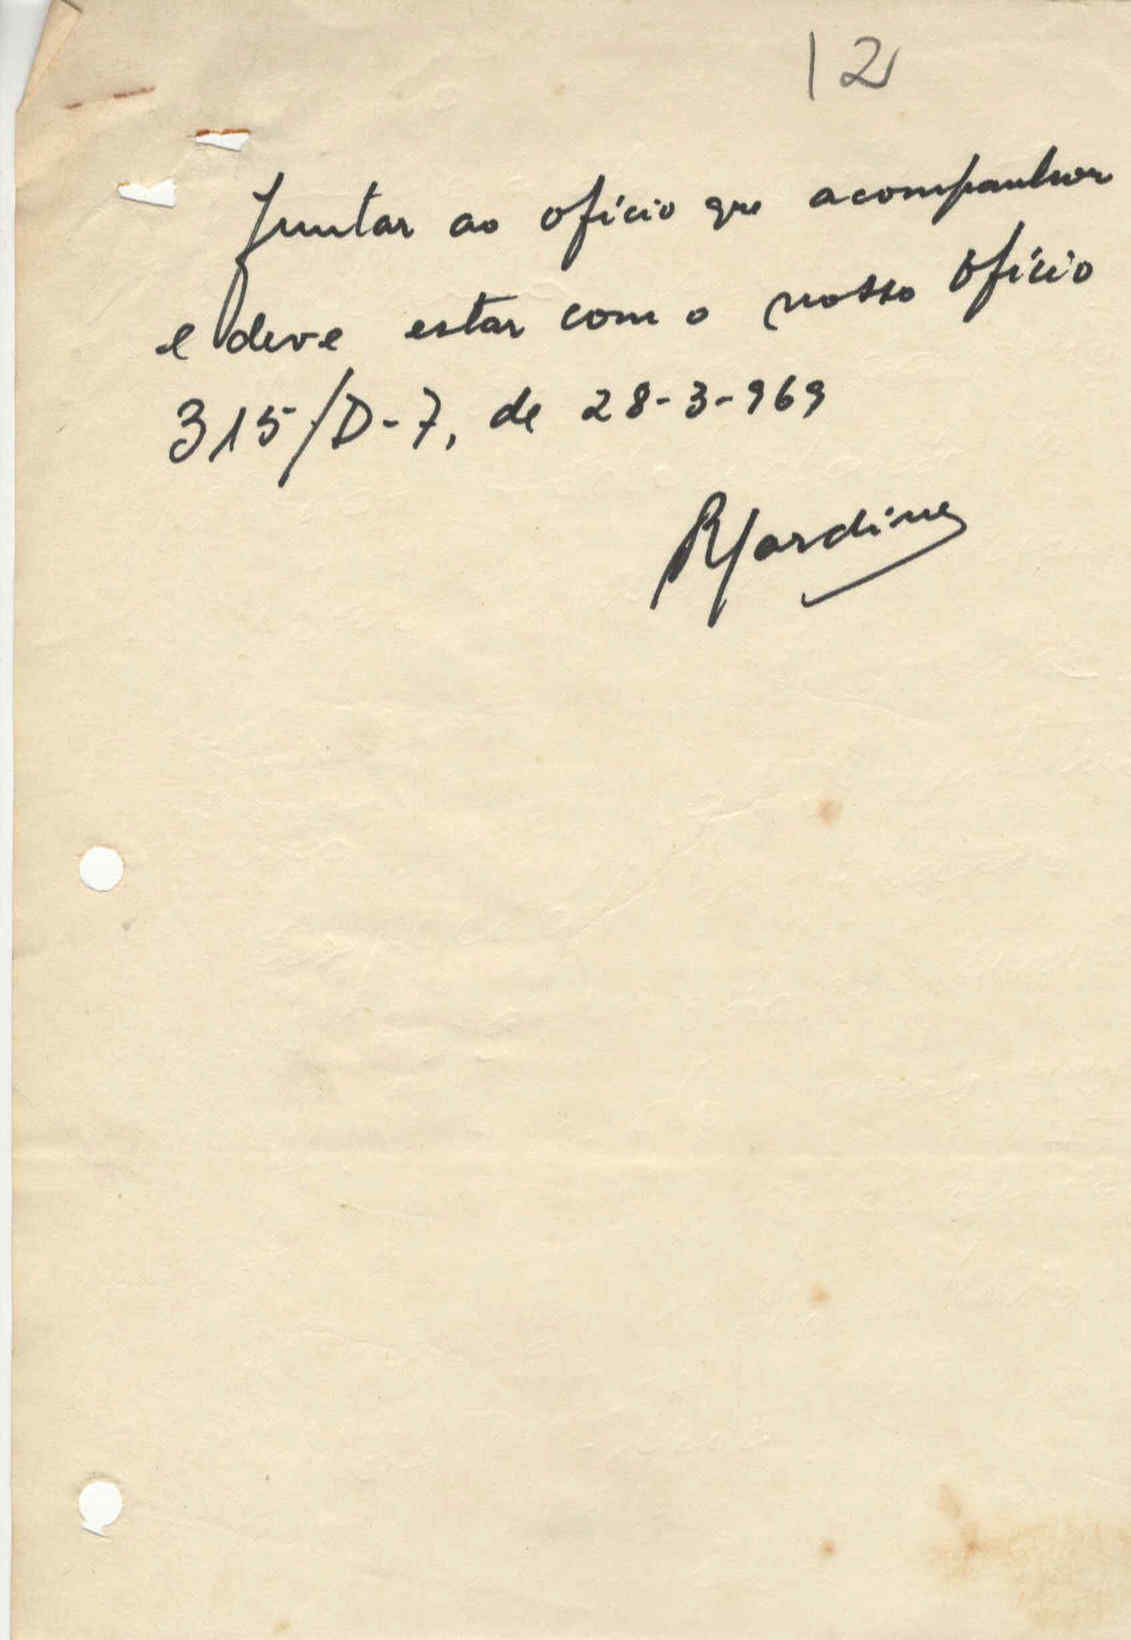 12
Juntar ao ofício que acompanhou
e deve estar com o nosso Ofício
315/D-7, de 28-3-969
RJardine